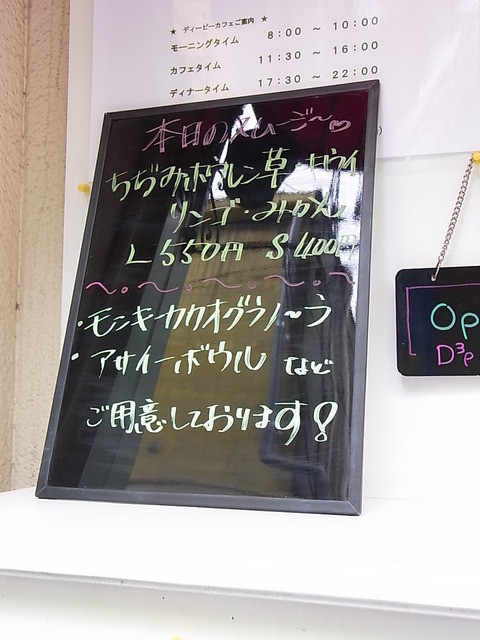 ★ ディーピーカフェご案内 ★
モーニングタイム 8:00 ～ 10:00
カフェタイム 11:30 ～ 16:00
ディナータイム 17:30 ～ 22:00
本日のスムージ～♡
ちぢみホウレン草・キウイ
リンゴ・みかん
L 550円 S 400円
～。～。～。～。～
・モンキーカカオグラノ～ラ
・アサイーボウル など
ご用意しております!
Op
D³p